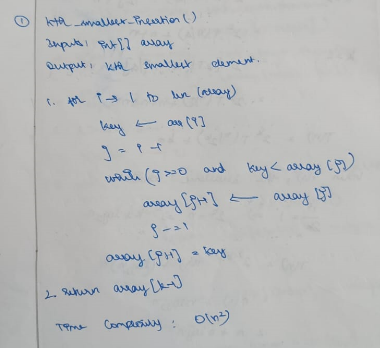 ① kth_smallest_Insertion()
Input: int[] array
Output: kth smallest element.
1. for i → 1 to len (array)
key ← arr[i]
j = i - 1
while (j >= 0 and key < array [j])
array [j+1] ← array [j]
j -= 1
array [j+1] = key
2. return array [k-1]
Time Complexity : O(n²)